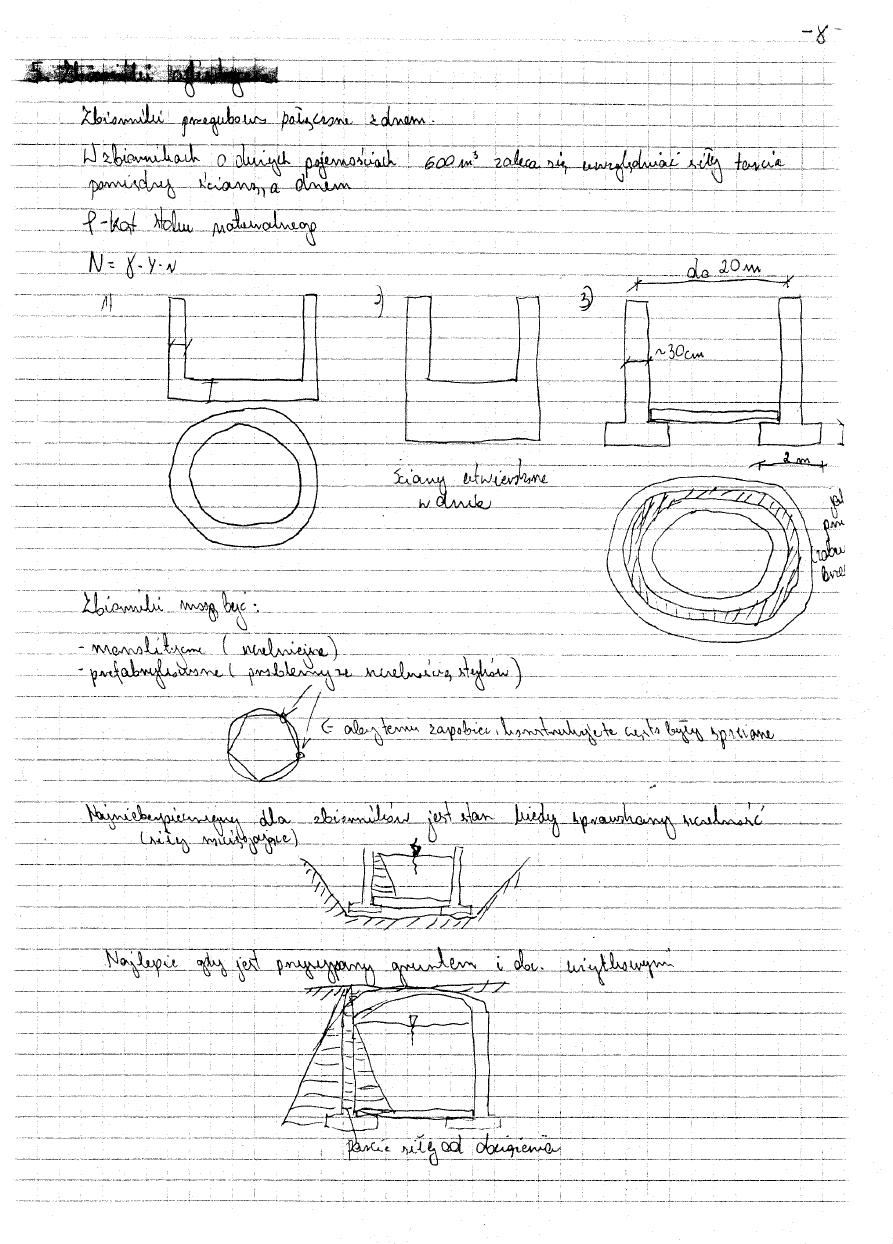 -8-
5. Zbiorniki
Zbiorniki przegubowo połączone z dnem.
W zbiornikach o dużych pojemościach 600m³ zaleca się uwzględniać siły tarcia
pomiędzy ścianą, a dnem
φ-kąt stoku naturalnego
N = γ·
do 20m
1)
2)
3)
~30cm
2m
ściany utwierdzone
w dnie
Zbiorniki mogą być:
- monolityczne (szczelniejsze)
- prefabrykowane (problemy ze szczelnością styków)
← aby temu zapobiec, konstrukcje te często były sprężane
Najniebezpieczniejszy dla zbiorników jest stan kiedy sprawdzamy szczelność
(siły rozciągające)
Najlepiej gdy jest przysypany gruntem i obc. użytkowymi
parcie siły od obciążenia